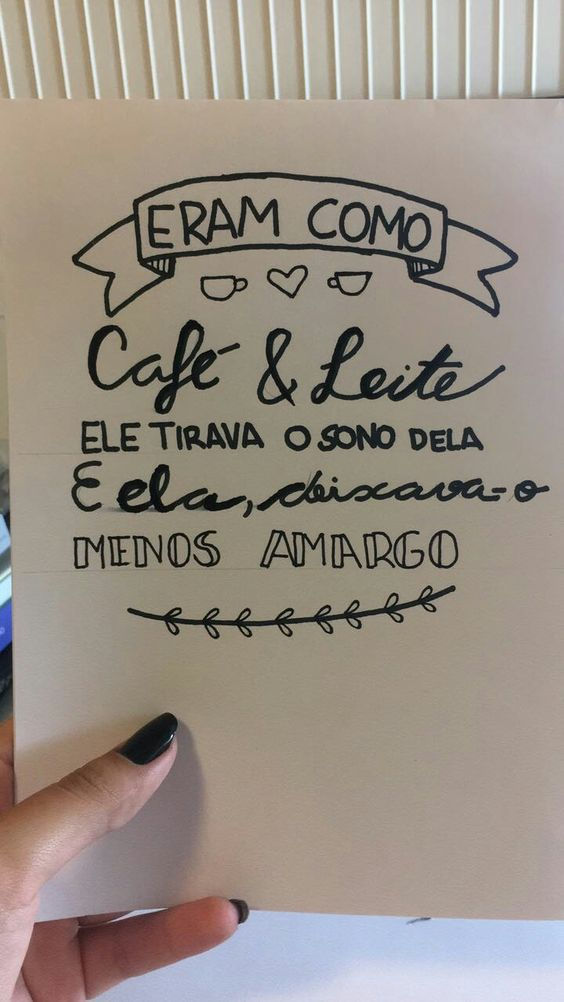 ERAM COMO
Café & Leite
ELE TIRAVA O SONO DELA
E ela, deixava-o
MENOS AMARGO